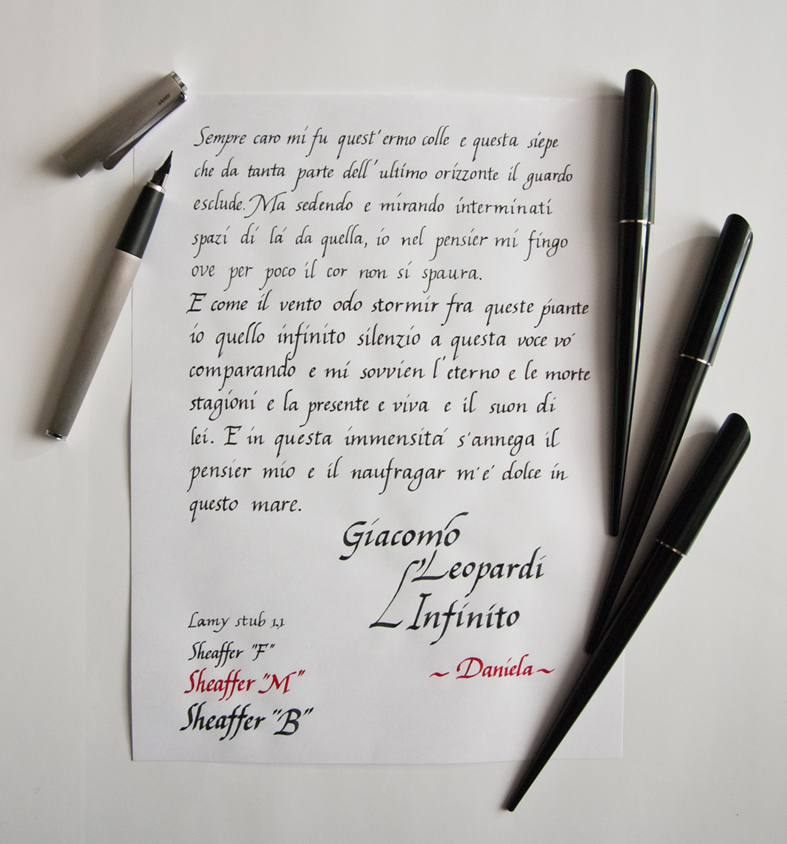 LAMY
Sempre caro mi fu quest'ermo colle e questa siepe
che da tanta parte dell'ultimo orizzonte il guardo
esclude. Ma sedendo e mirando interminati
spazi di lá da quella, io nel pensier mi fingo
ove per poco il cor non si spaura.
E come il vento odo stormir fra queste piante
io quello infinito silenzio a questa voce vo'
comparando e mi sovvien l'eterno e le morte
stagioni e la presente e viva e il suon di
lei. E in questa immensitá s'annega il
pensier mio e il naufragar m'e' dolce in
questo mare.
Giacomo
Leopardi
L'Infinito
~ Daniela ~
Lamy stub 1,1
Sheaffer "F"
Sheaffer "M"
Sheaffer "B"